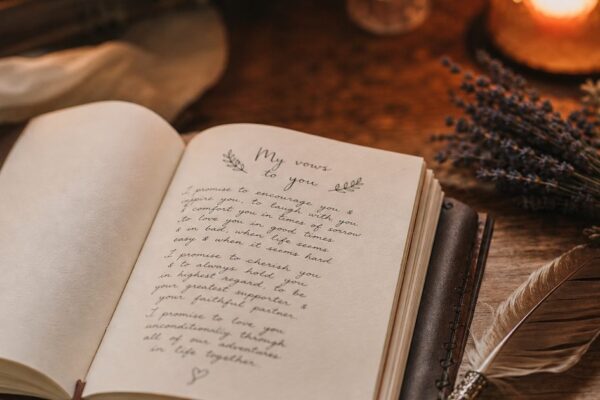 My vows
to you
I promise to encourage you &
inspire you, to laugh with you
& comfort you in times of sorrow
to love you in good times
& in bad, when life seems
easy & when it seems hard
I promise to cherish you
& to always hold you
in highest regard, to be
your greatest supporter &
your faithful partner.
I promise to love you
unconditionally through
all of our adventures
in life together.